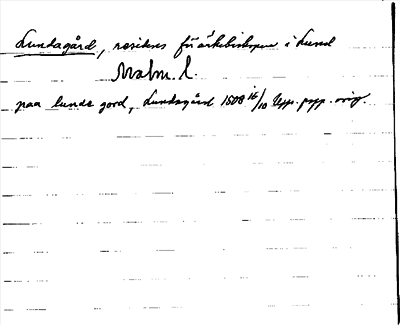 Lundagård, residens för ärkebiskopen i Lund
Malm. l.
paa lunde gord, Lundagård 1508 16/10 Upps. papp. orig.